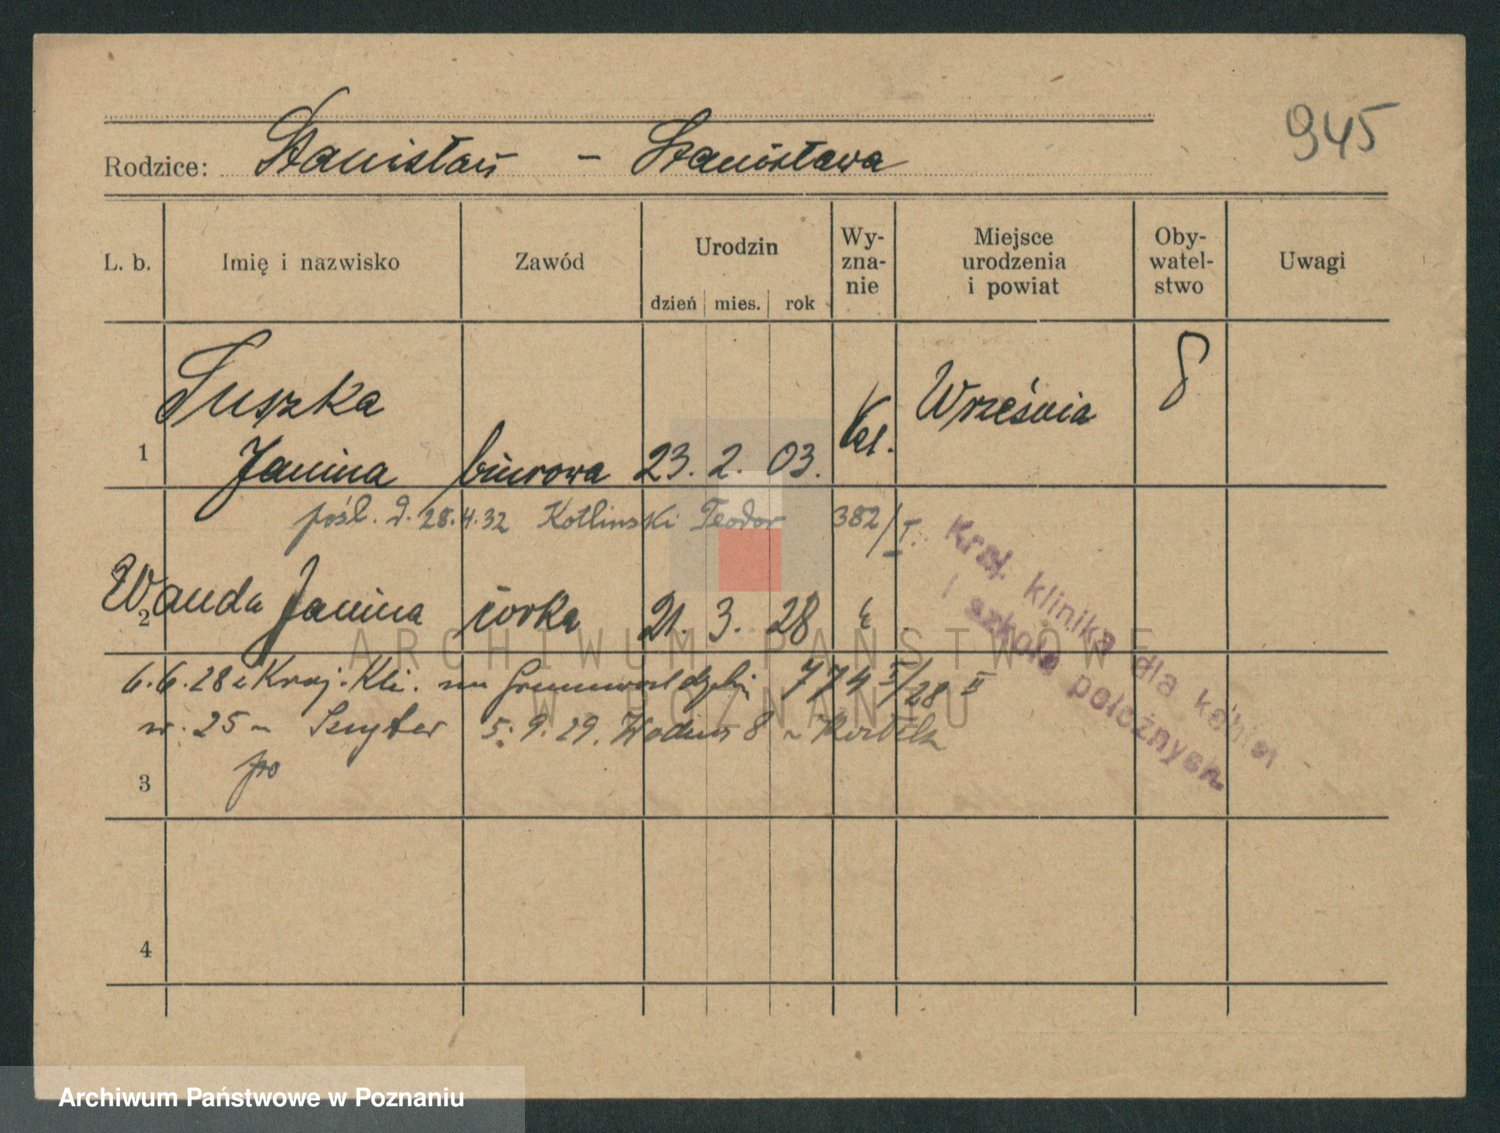 945
Rodzice: Stanisław – Stanisława
L. b. Imię i nazwisko Zawód Urodzin dzień mies. rok Wy-zna-nie Miejsce urodzenia i powiat Oby-watel-stwo Uwagi
Suszka
1 Janina biurowa 23. 2. 03. Kat. Września
pośl. d. 28.4.32 Kotlinski Teodor 382/I.
2 Wanda Janina córka 21. 3. 28
6.6.28 z Kraj. Kli. 774 I/28 II
nr. 25 – 5.9.29. 8
3
4
Kraj. klinika dla kobiet
i szkoła położnych
ARCHIWUM PAŃSTWOWE
W POZNANIU
Archiwum Państwowe w Poznaniu